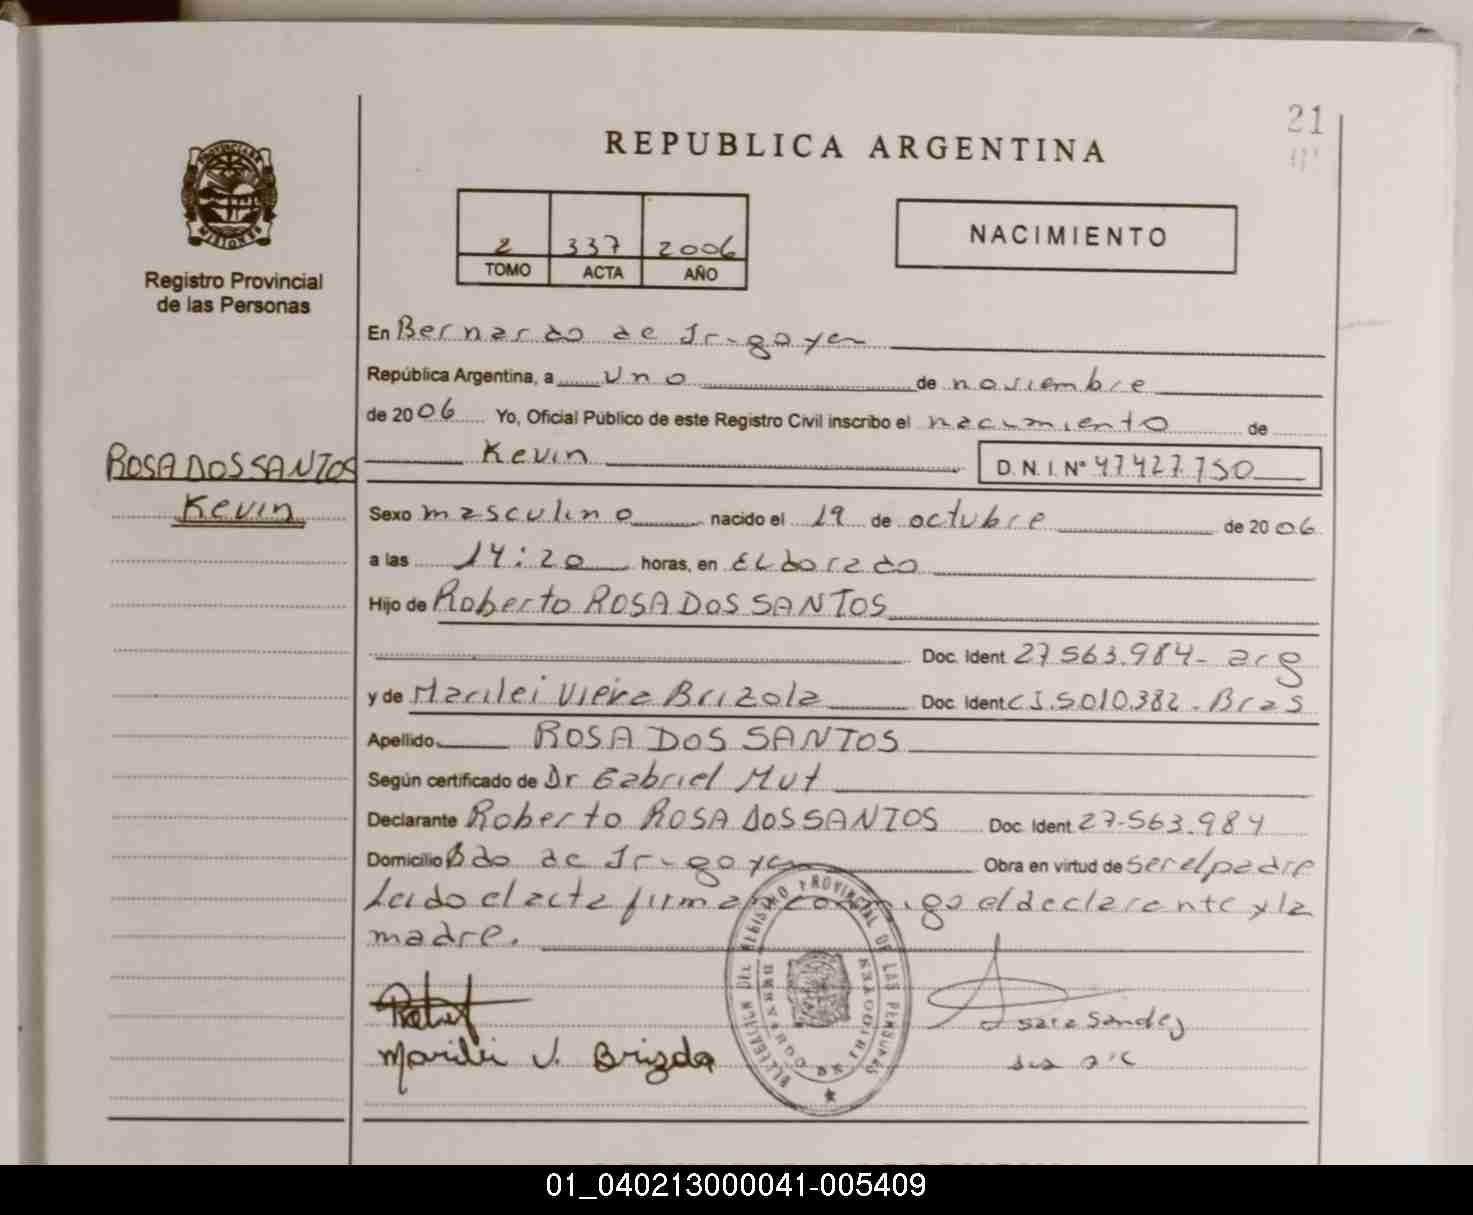 21
REPUBLICA ARGENTINA
PROVINCIA DE MISIONES
Registro Provincial
de las Personas
2 337 2006
TOMO ACTA AÑO
NACIMIENTO
En Bernardo de Irigoyen
República Argentina, a uno de noviembre
de 2006 Yo, Oficial Público de este Registro Civil inscribo el nacimiento de
Kevin D.N.I. N° 47427.750
ROSA DOS SANTOS
Kevin
Sexo masculino nacido el 19 de octubre de 2006
a las 14:20 horas, en Eldorado
Hijo de Roberto ROSA DOS SANTOS
Doc. Ident. 27563.984- arg
y de Marilei Vieira Brizola Doc. Ident C I.5010.382 - Bras
Apellido ROSA DOS SANTOS
Según certificado de Dr Gabriel Mut
Declarante Roberto ROSA DOS SANTOS Doc. Ident. 27-563.984
Domicilio Bdo de Irigoyen Obra en virtud de ser el padre
Leido el acta firman conmigo el declarante y la
madre.
DELEGACION DEL REGISTRO PROVINCIAL DE LAS PERSONAS
BERNARDO DE IRIGOYEN
Marilei V. Brizola
01_040213000041-005409